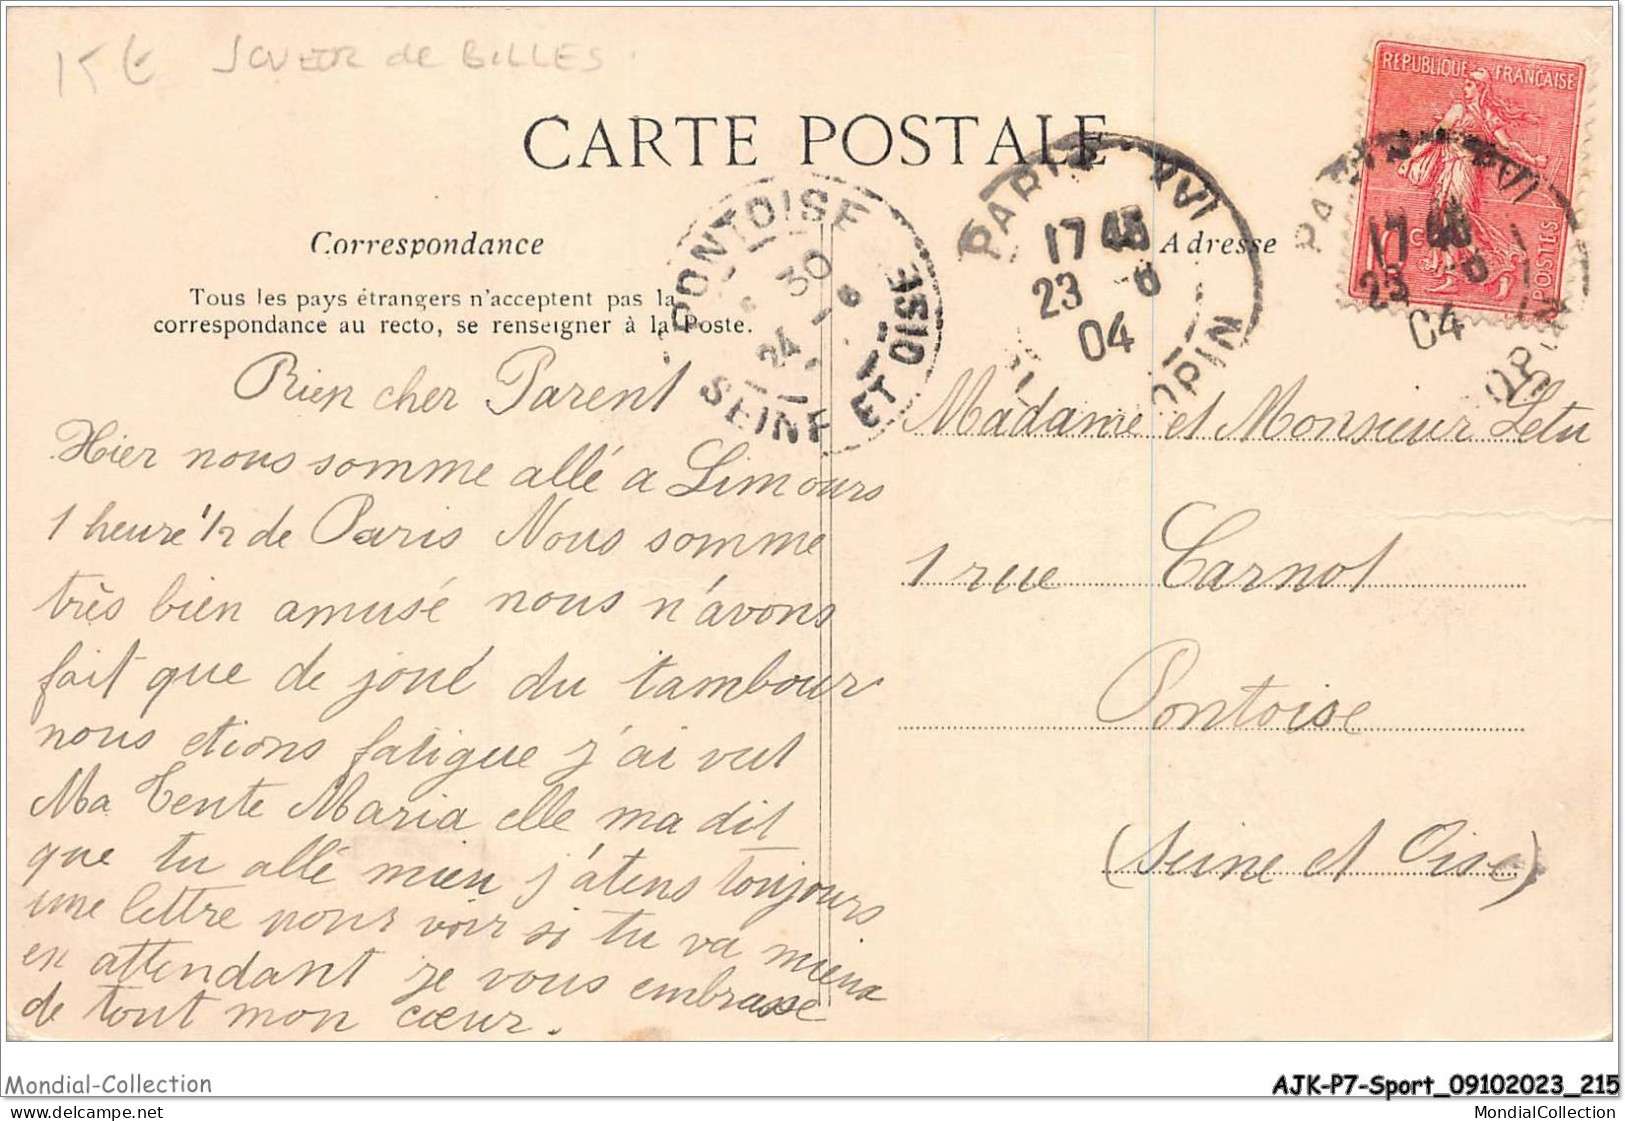 15 € JOUEUR de BILLES
CARTE POSTALE
REPUBLIQUE FRANÇAISE
10 c
POSTES
PONTOISE
30
24 - 6
SEINE ET OISE
PARIS XVI
17 45
23 - 6
04
PARIS XVI
17 45
23 6
04
Correspondance
Adresse
Tous les pays étrangers n'acceptent pas la
correspondance au recto, se renseigner à la Poste.
Bien cher Parent
Hier nous somme allé a Limours
1 heure 1/2 de Paris Nous somme
très bien amusé nous n'avons
fait que de joué du tambour
nous etions fatigue j'ai vut
Ma Tente Maria elle ma dit
que tu allé mieu j'atens toujours
une lettre pour voir si tu va mieux
en attendant je vous embrasse
de tout mon cœur.
Madame et Monsieur Letu
1 rue Carnot
Pontoise
(Seine et Oise)
Mondial-Collection
AJK-P7-Sport_09102023_215
MondialCollection